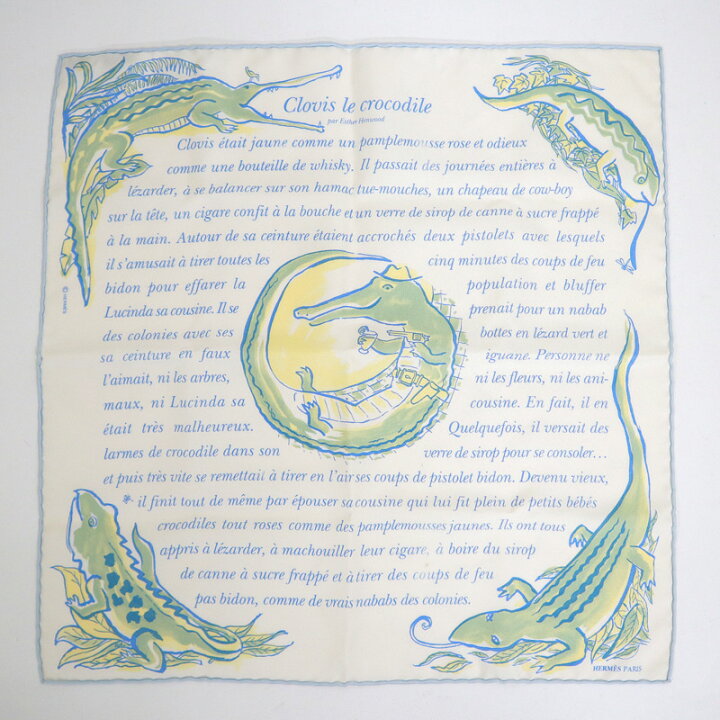 Clovis le crocodile
par Esther Henwood
Clovis était jaune comme un pamplemousse rose et odieux
comme une bouteille de whisky. Il passait des journées entières à
lézarder, à se balancer sur son hamac tue-mouches, un chapeau de cow-boy
sur la tête, un cigare confit à la bouche et un verre de sirop de canne à sucre frappé
à la main. Autour de sa ceinture étaient accrochés deux pistolets avec lesquels
il s'amusait à tirer toutes les cinq minutes des coups de feu
bidon pour effarer la population et bluffer
Lucinda sa cousine. Il se prenait pour un nabab
des colonies avec ses bottes en lézard vert et
sa ceinture en faux iguane. Personne ne
l'aimait, ni les arbres, ni les fleurs, ni les ani-
maux, ni Lucinda sa cousine. En fait, il en
était très malheureux. Quelquefois, il versait des
larmes de crocodile dans son verre de sirop pour se consoler...
et puis très vite se remettait à tirer en l'air ses coups de pistolet bidon. Devenu vieux,
il finit tout de même par épouser sa cousine qui lui fit plein de petits bébés
crocodiles tout roses comme des pamplemousses jaunes. Ils ont tous
appris à lézarder, à machouiller leur cigare, à boire du sirop
de canne à sucre frappé et à tirer des coups de feu
pas bidon, comme de vrais nababs des colonies.
© HERMÈS
HERMÈS PARIS